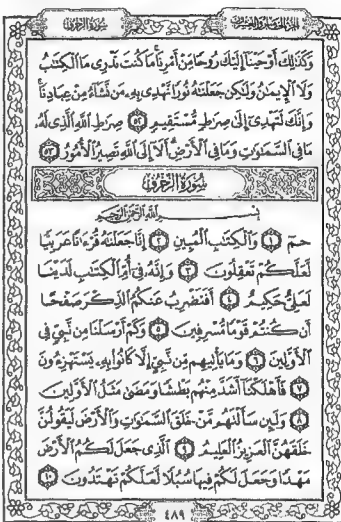 سورة الزخرف
وَكَذَٰلِكَ أَوْحَيْنَا إِلَيْكَ رُوحًا مِنْ أَمْرِنَا مَا كُنْتَ تَدْرِي مَا الْكِتَٰبُ
وَلَا الْإِيمَٰنُ وَلَٰكِن جَعَلْنَٰهُ نُورًا نَهْدِي بِهِ مَن نَّشَاءُ مِنْ عِبَادِنَا
وَإِنَّكَ لَتَهْدِي إِلَىٰ صِرَٰطٍ مُّسْتَقِيمٍ ٥٢ صِرَٰطِ اللَّهِ الَّذِي لَهُ
مَا فِي السَّمَٰوَٰتِ وَمَا فِي الْأَرْضِ أَلَا إِلَى اللَّهِ تَصِيرُ الْأُمُورُ ٥٣
سُورَةُ الزُّخْرُفِ
بِسْمِ اللَّهِ الرَّحْمَٰنِ الرَّحِيمِ
حمٓ ١ وَالْكِتَٰبِ الْمُبِينِ ٢ إِنَّا جَعَلْنَٰهُ قُرْءَٰنًا عَرَبِيًّا
لَّعَلَّكُمْ تَعْقِلُونَ ٣ وَإِنَّهُ فِي أُمِّ الْكِتَٰبِ لَدَيْنَا
لَعَلِيٌّ حَكِيمٌ ٤ أَفَنَضْرِبُ عَنكُمُ الذِّكْرَ صَفْحًا
أَن كُنتُمْ قَوْمًا مُّسْرِفِينَ ٥ وَكَمْ أَرْسَلْنَا مِن نَّبِيٍّ فِي
الْأَوَّلِينَ ٦ وَمَا يَأْتِيهِم مِّن نَّبِيٍّ إِلَّا كَانُوا بِهِ يَسْتَهْزِءُونَ
٧ فَأَهْلَكْنَا أَشَدَّ مِنْهُم بَطْشًا وَمَضَىٰ مَثَلُ الْأَوَّلِينَ
٨ وَلَئِن سَأَلْتَهُم مَّنْ خَلَقَ السَّمَٰوَٰتِ وَالْأَرْضَ لَيَقُولُنَّ
خَلَقَهُنَّ الْعَزِيزُ الْعَلِيمُ ٩ الَّذِي جَعَلَ لَكُمُ الْأَرْضَ
مَهْدًا وَجَعَلَ لَكُمْ فِيهَا سُبُلًا لَّعَلَّكُمْ تَهْتَدُونَ ١٠
٤٨٩